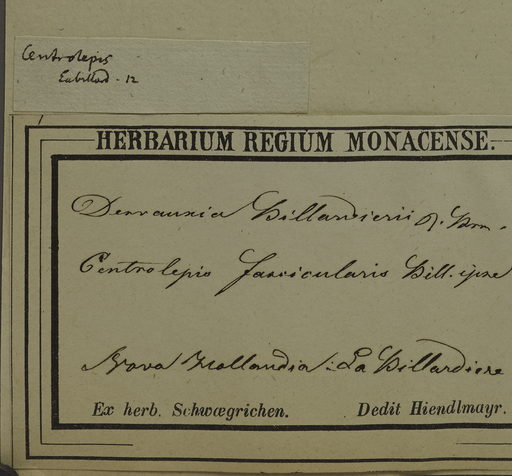 Centrolepis
Labillard. 12
HERBARIUM REGIUM MONACENSE.
Desvauxia Billardierii R. Brn.
Centrolepis fascicularis Bill. ipse
Nova Hollandia: La Billardiere
Ex herb. Schwægrichen. Dedit Hiendlmayr.